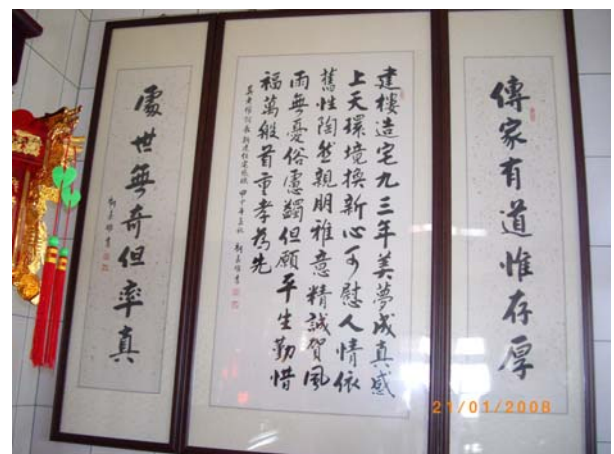 傳家有道惟存厚
建樓造宅九三年美夢成真感
上天環境換新心可慰人情依
舊性陶然親朋雅意精誠賀風
雨無憂俗慮蠲但願平生勤惜
福萬般首重孝為先
處世無奇但率真
21/01/2008